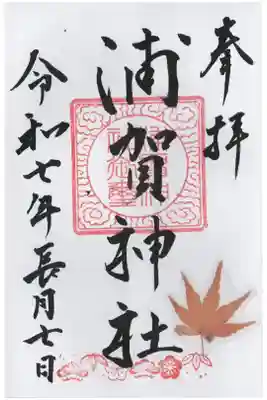 奉拝
浦賀神社
令和七年長月七日